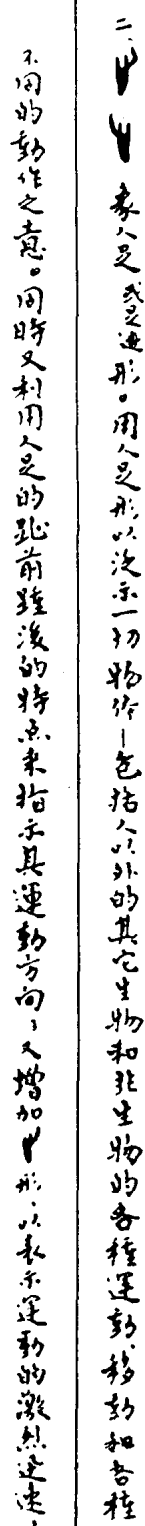 二、 象人足或足迹形。用人足形以泛示一切物体—包括人以外的其它生物和非生物的各種運動、移動和各種
不同的動作之意。同時又利用人足的趾前踵後的特点来指示其運動方向，又增加 形，以表示運動的激烈迅速，